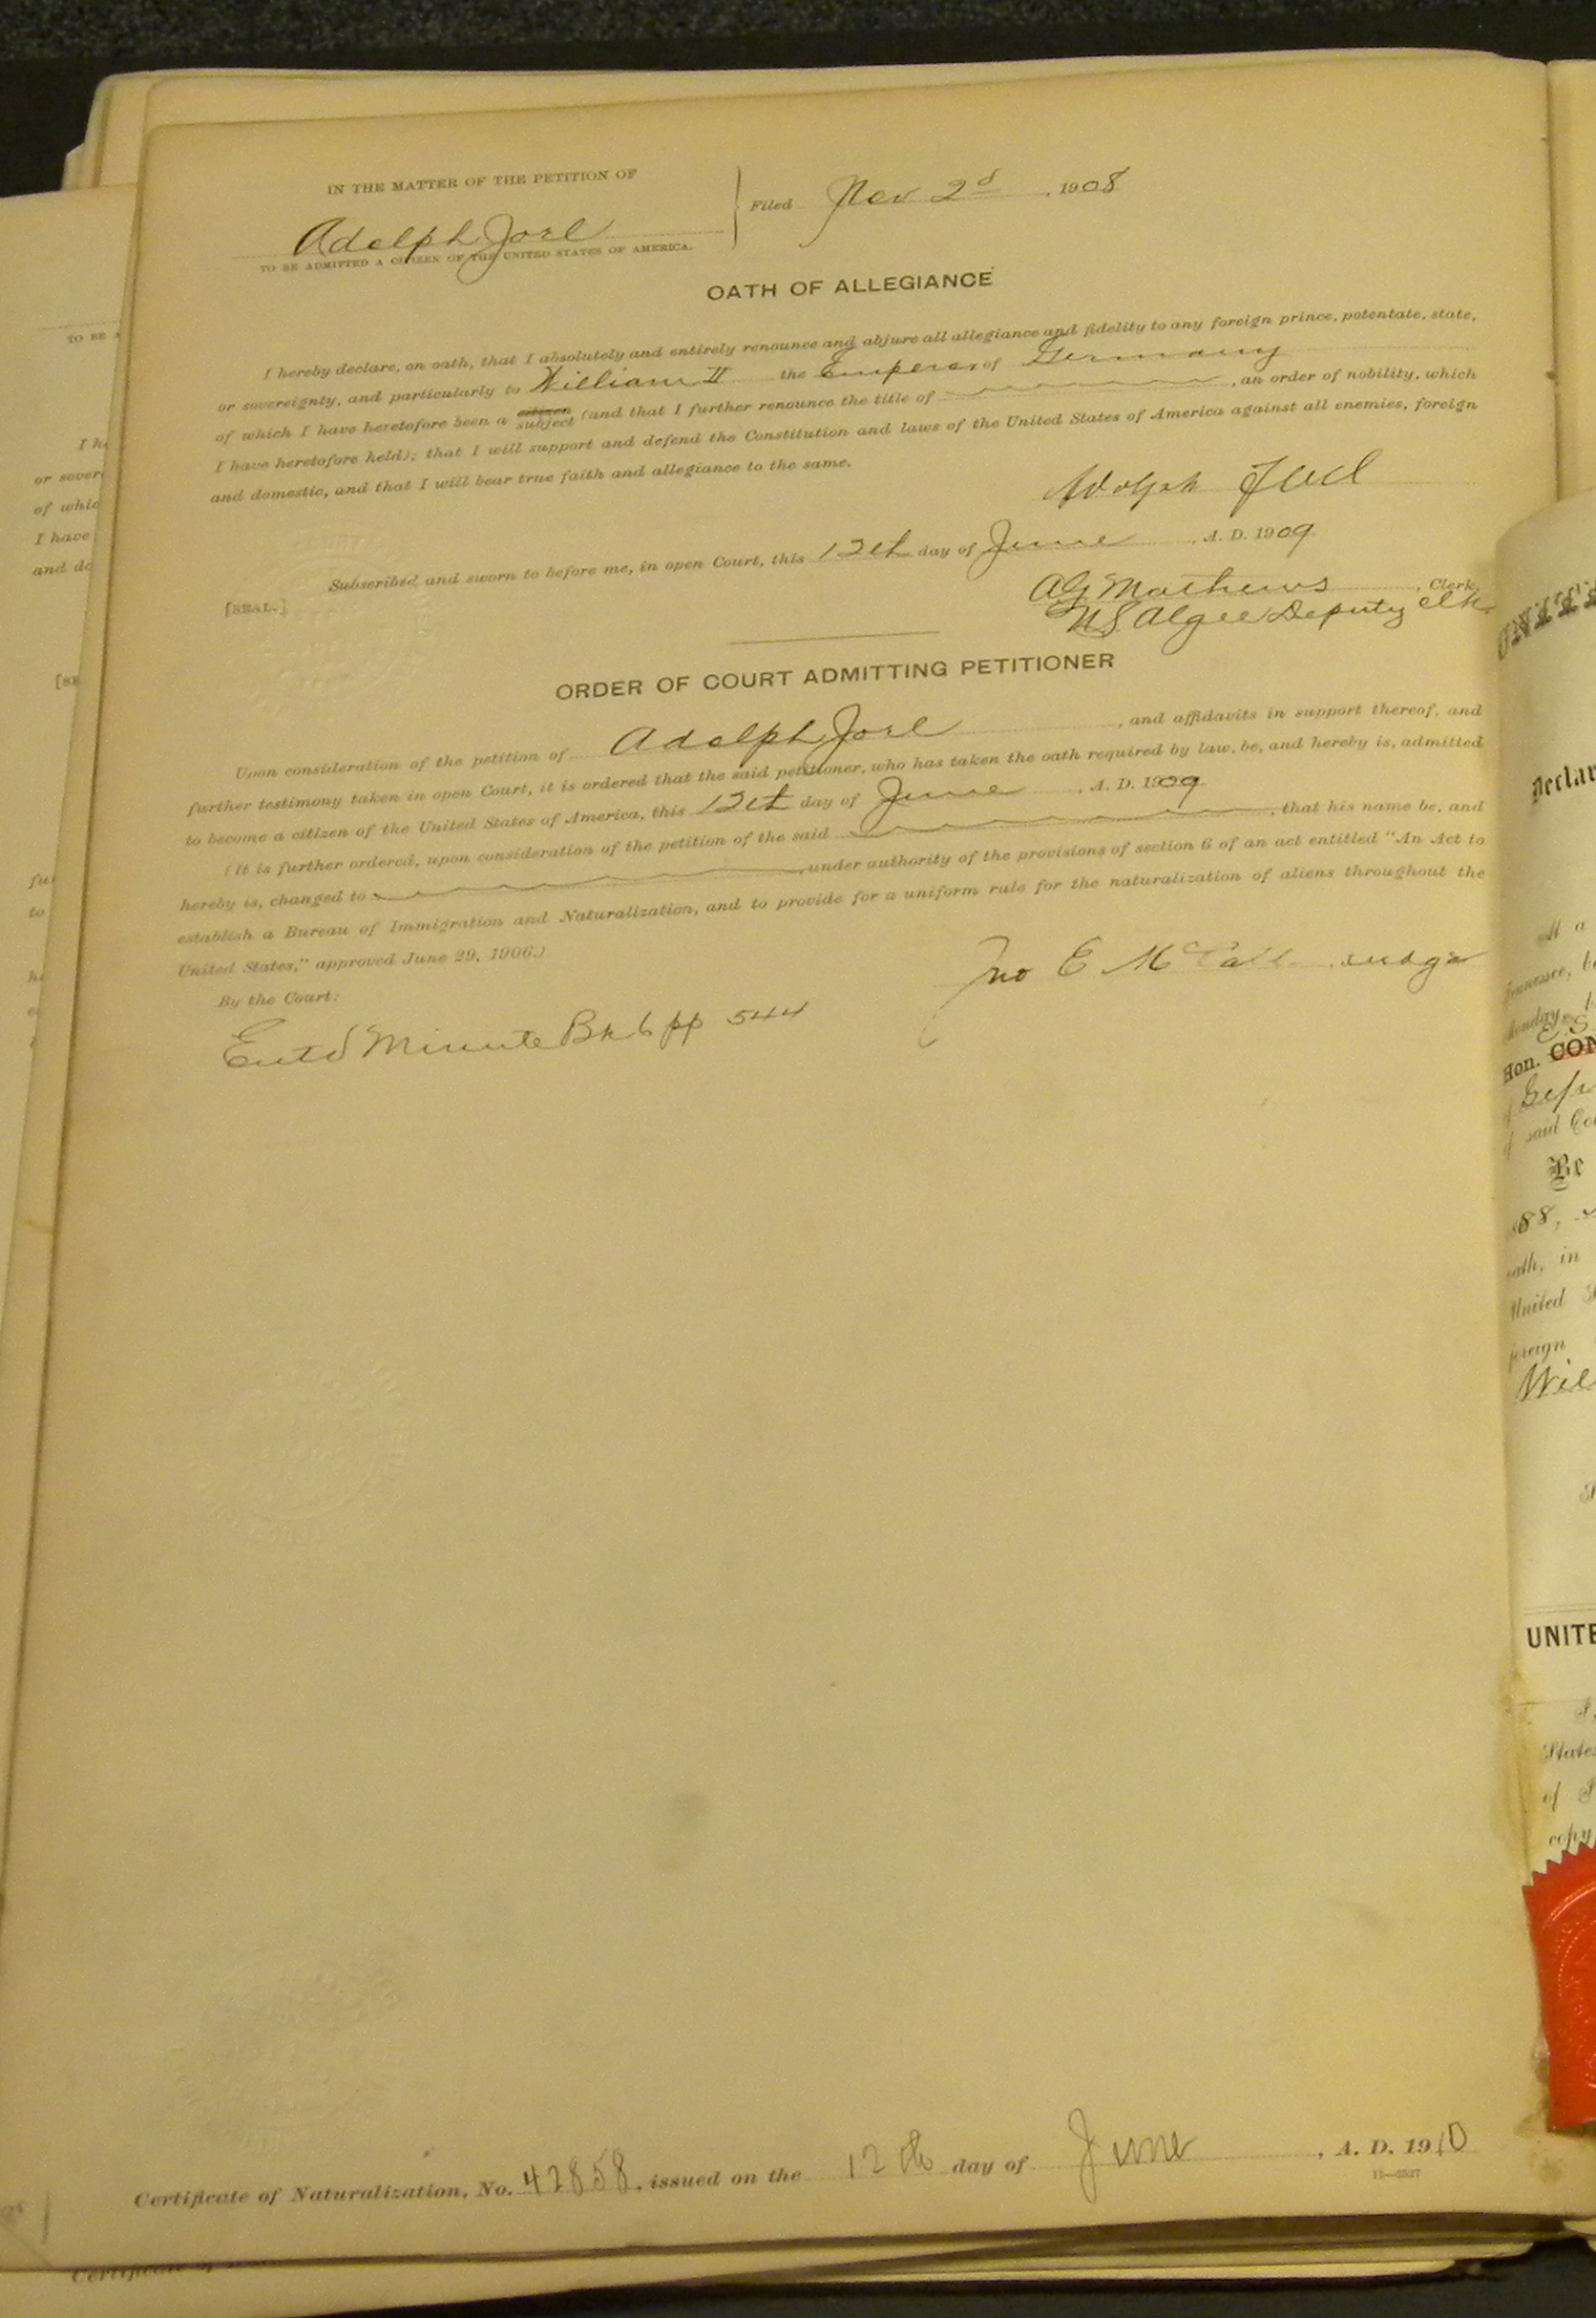 IN THE MATTER OF THE PETITION OF
Adolph Joel
TO BE ADMITTED A CITIZEN OF THE UNITED STATES OF AMERICA.
Filed Nov 2d, 1908
OATH OF ALLEGIANCE
I hereby declare, on oath, that I absolutely and entirely renounce and abjure all allegiance and fidelity to any foreign prince, potentate, state,
or sovereignty, and particularly to William II the Emperor of Germany
of which I have heretofore been a citizen subject (and that I further renounce the title of , an order of nobility, which
I have heretofore held); that I will support and defend the Constitution and laws of the United States of America against all enemies, foreign
and domestic, and that I will bear true faith and allegiance to the same.
Adolph Joel
Subscribed and sworn to before me, in open Court, this 12th day of June, A. D. 1909
[SEAL.]
A G Mathews, Clerk
Algee Deputy clk
ORDER OF COURT ADMITTING PETITIONER
Upon consideration of the petition of Adolph Joel, and affidavits in support thereof, and
further testimony taken in open Court, it is ordered that the said petitioner, who has taken the oath required by law, be, and hereby is, admitted
to become a citizen of the United States of America, this 12th day of June, A. D. 1909
(It is further ordered, upon consideration of the petition of the said , that his name be, and
hereby is, changed to , under authority of the provisions of section 6 of an act entitled "An Act to
establish a Bureau of Immigration and Naturalization, and to provide for a uniform rule for the naturalization of aliens throughout the
United States," approved June 29, 1906.)
By the Court:
Jno E McCall Judge
Entd Minute Bk 6 pp 544
Certificate of Naturalization, No. 42858, issued on the 12th day of June, A. D. 1910
11-2527
TO BE
I h
or sover
of whic
I have
and do
[SE
UNITE
Declar
Hon. CON
Be
88,
oath, in
United
foreign
Wil
UNITE
State
of
copy